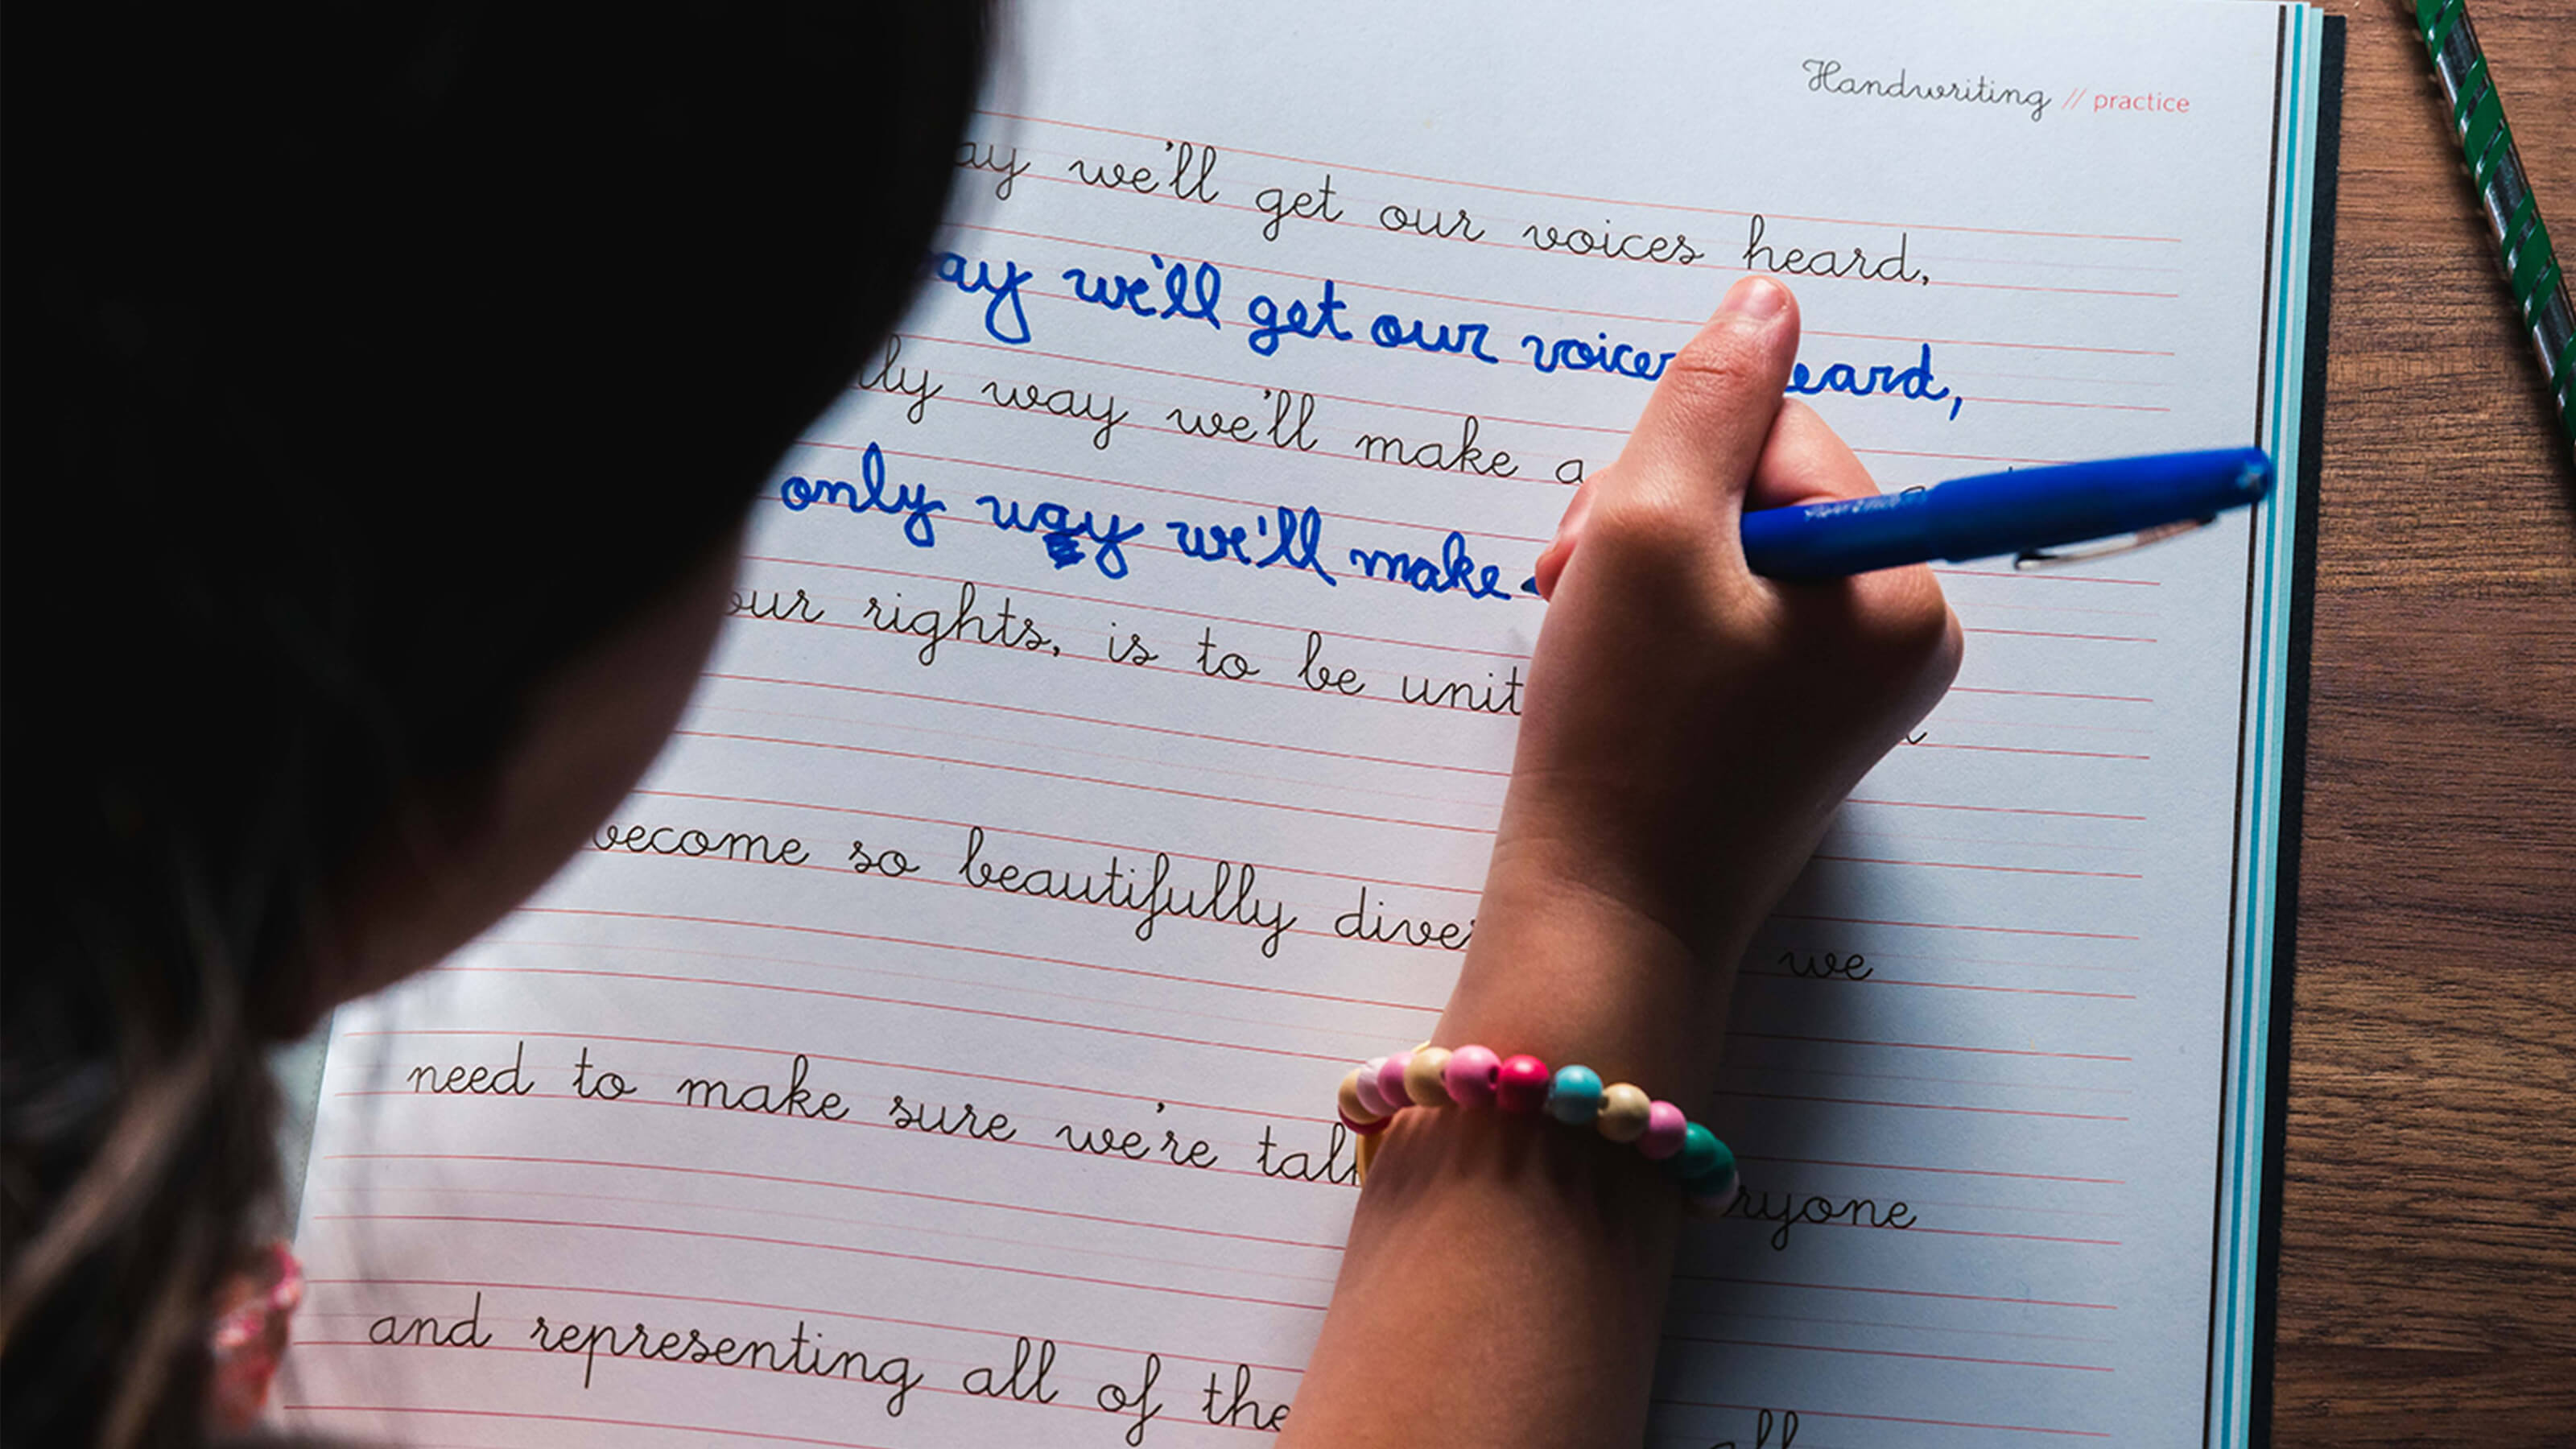 Handwriting // practice
we'll get our voices heard,
we'll get our heard,
way we'll make a
only way we'll make
our rights, is to be
become so beautifully we
need to make sure we're
and representing all of the